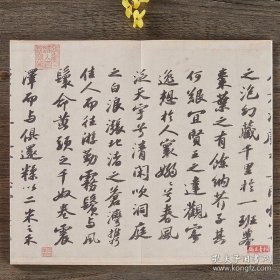 之泡幻藏千里於一班舉
棗葉之有餘納芥子其
何艱宜賢王之達觀寄
逸想於人寰嫋嫋兮春風
泛天宇兮清閑吹洞庭
之白浪漲北渚之蒼灣攜
佳人而往游勤霧鬢與風
鬟命黃頭之千奴卷震
澤而與俱還糅以二米之禾